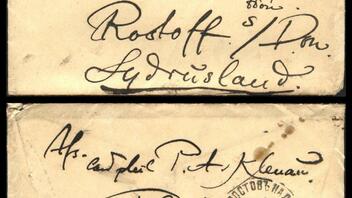 s
Rostoff /Don.
Sydrusland.
Afs.
cand phil P. A. Klenau.
РОСТОВЪ НА Д